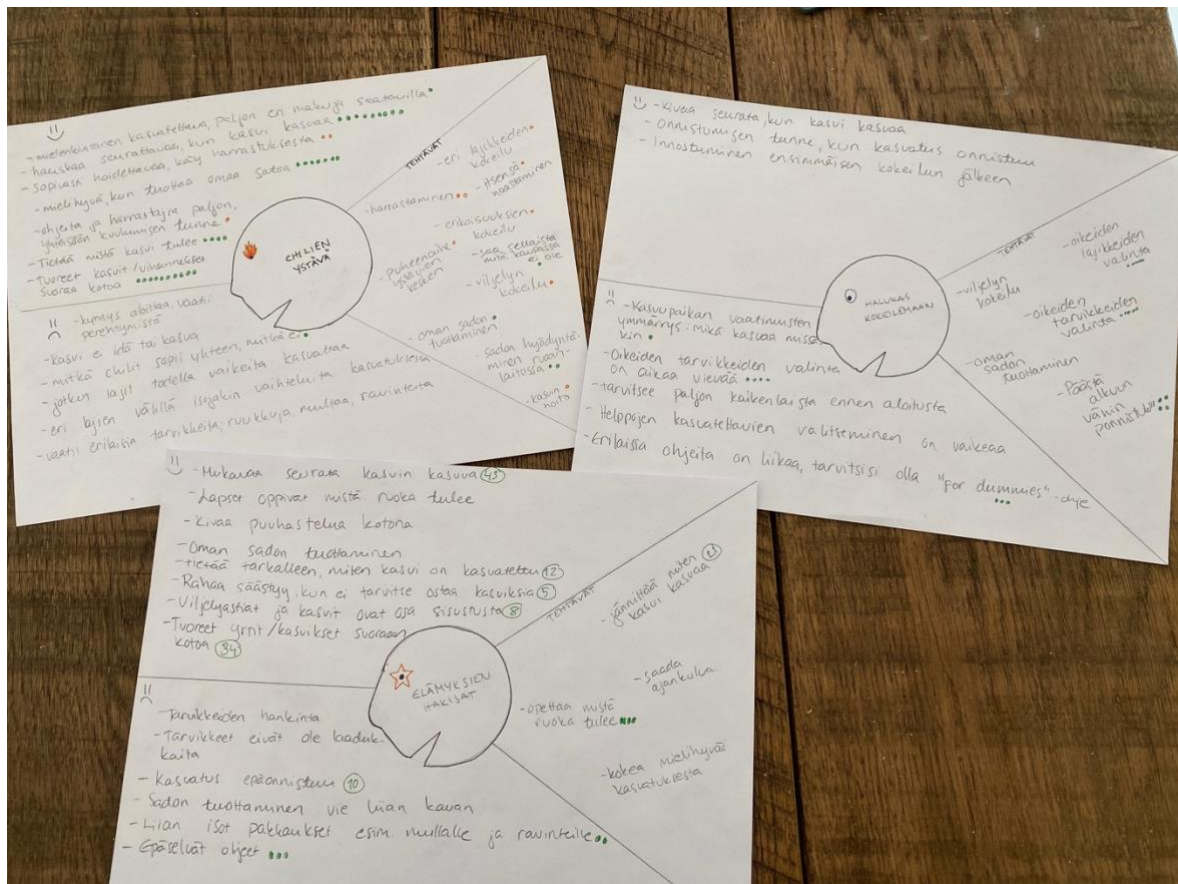 - mielenkiintoinen kasvatettava, paljon eri makuja saatavilla
- hauskaa seurattavaa, kun kasvi kasvaa
- sopivasti hoidettavaa, käy harrastuksesta
- mielihyvä, kun tuottaa omaa satoa
- ohjeita ja harrastajia paljon,
yhteisöön kuulumisen tunne
- Tietää mistä kasvi tulee
- Tuoreet kasvit/vihannekset
suoraa kotoa
CHILIEN
YSTÄVÄ
TEHTÄVÄT
- eri lajikkeiden
kokeilu
- itsensä
haastaminen
- harrastaminen
- erikoisuuksien
kokeilu
- Puheenaihe
ystävien
kesken
- saa sellaista
mitä kaupassa
ei ole
- viljelyn
kokeilu
- oman sadon
tuottaminen
- sadon hyödyntä-
minen ruoan-
laitossa
- kasvin
hoito
- kynnys aloittaa, vaatii
perehtymistä
- kasvi ei idä tai kasva
- mitkä chilit sopii yhteen, mitkä ei
- jotkun lajit todella vaikeita kasvattaa
- eri lajien välillä isojakin vaihteluita kasvatuksessa
- vaatii erilaisia tarvikkeita; ruukkuja, multaa, ravinteita
- Kivaa seurata, kun kasvi kasvaa
- Onnistumisen tunne, kun kasvatus onnistuu
- Innostuminen ensimmäisen kokeilun jälkeen
HALUKAS
KOKEILEMAAN
TEHTÄVÄT
- oikeiden
lajikkeiden
valinta
- viljelyn
kokeilu
- oikeiden
tarvikkeiden
valinta
- oman
sadon
tuottaminen
- Päästä
alkuun
vähin
ponnistuksin
- Kasvupaikan vaatimusten
ymmärrys: mikä kasvaa missä-
kin
- Oikeiden tarvikkeiden valinta
on aikaa vievää
- tarvitsee paljon kaikenlaista ennen aloitusta
- Helppojen kasvatettavien valitseminen on vaikeaa
- Erilaisia ohjeita on liikaa, tarvitsisi olla "for dummies" -ohje
- Mukavaa seurata kasvin kasvua 43
- Lapset oppivat mistä ruoka tulee
- Kivaa puuhastelua kotona
- Oman sadon tuottaminen
- tietää tarkalleen, miten kasvi on kasvatettu 12
- Rahaa säästyy, kun ei tarvitse ostaa kasviksia 5
- Viljelyastiat ja kasvit ovat osa sisustusta 8
- Tuoreet yrtit/kasvikset suoraan
kotoa 34
ELÄMYKSIEN
HAKIJAT
TEHTÄVÄT
- jännittää miten 21
kasvi kasvaa
- saada
ajankulua
- opettaa mistä
ruoka tulee
- kokea mielihyvää
kasvatuksesta
- Tarvikkeiden hankinta
- Tarvikkeet eivät ole laaduk-
kaita
- Kasvatus epäonnistuu 10
- Sadon tuottaminen vie liian kauan
- Liian isot pakkaukset esim. mullalle ja ravinteille
- Epäselvät ohjeet